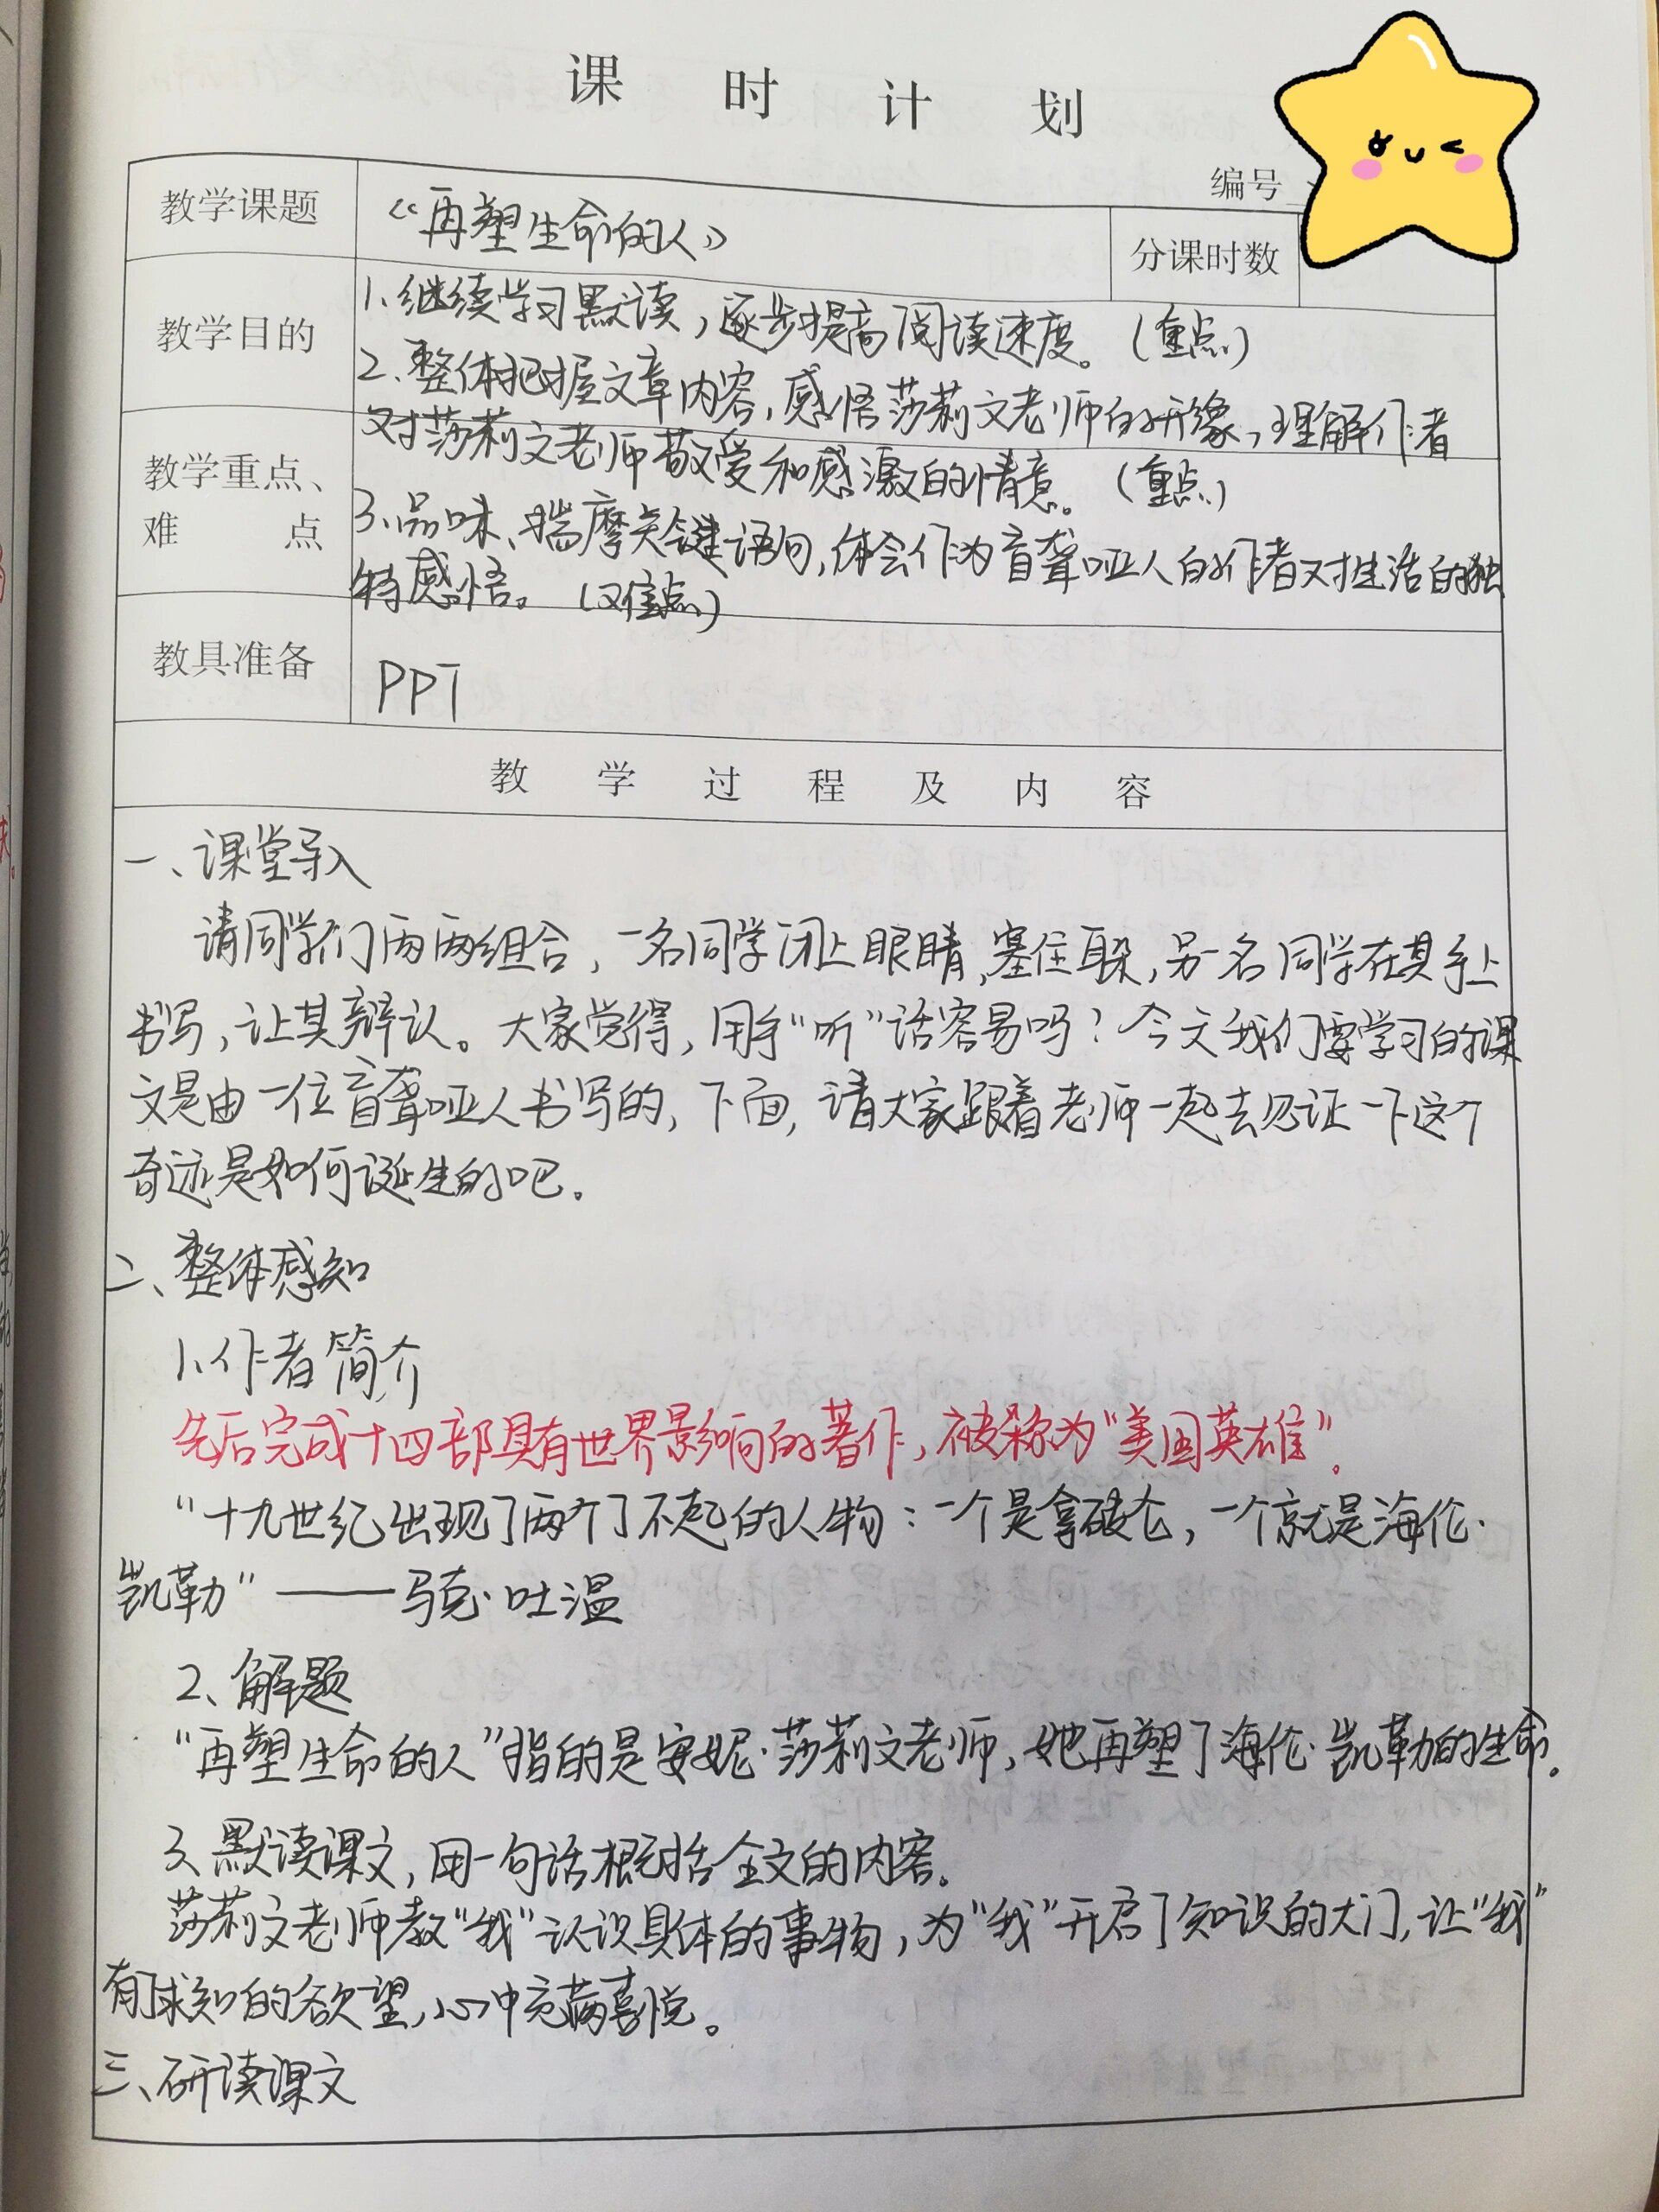 课时计划
编号
教学课题
《再塑生命的人》
分课时数
教学目的
1、继续学习默读，逐步提高阅读速度。（重点）
2、整体把握文章内容，感悟莎莉文老师的形象，理解作者
对莎莉文老师敬爱和感激的情意。（重点）
教学重点、
难点
3、品味、揣摩关键语句，体会作为盲聋哑人的作者对生活的独
特感悟。（难点）
教具准备
PPT
教学过程及内容
一、课堂导入
请同学们两两组合，一名同学闭上眼睛，塞住耳朵，另一名同学在其手上
书写，让其辩认。大家觉得，用手“听”话容易吗？今天我们要学习的课
文是由一位盲聋哑人书写的，下面，请大家跟着老师一起去见证一下这个
奇迹是如何诞生的吧。
二、整体感知
1、作者简介
先后完成十四部具有世界影响的著作，被称为“美国英雄”。
“十九世纪出现了两个了不起的人物：一个是拿破仑，一个就是海伦·
凯勒”——马克·吐温
2、解题
“再塑生命的人”指的是安妮·莎莉文老师，她再塑了海伦·凯勒的生命。
3、默读课文，用一句话概括全文的内容。
莎莉文老师教“我”认识具体的事物，为“我”开启了知识的大门，让“我”
有了求知的欲望，心中充满喜悦。
三、研读课文